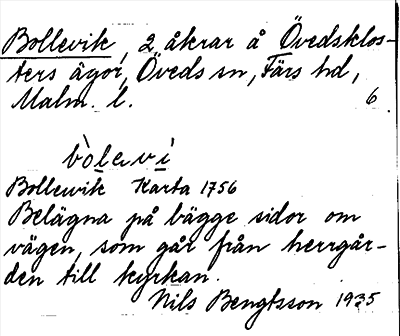 Bollevik, 2 åkrar å Övedsklos-
ters ägor, Öveds sn, Färs hd,
Malm. l. 6
bòlevì
Bollewik Karta 1756
Belägna på bägge sidor om
vägen, som går från herrgår-
den till kyrkan.
Nils Bengtsson 1935